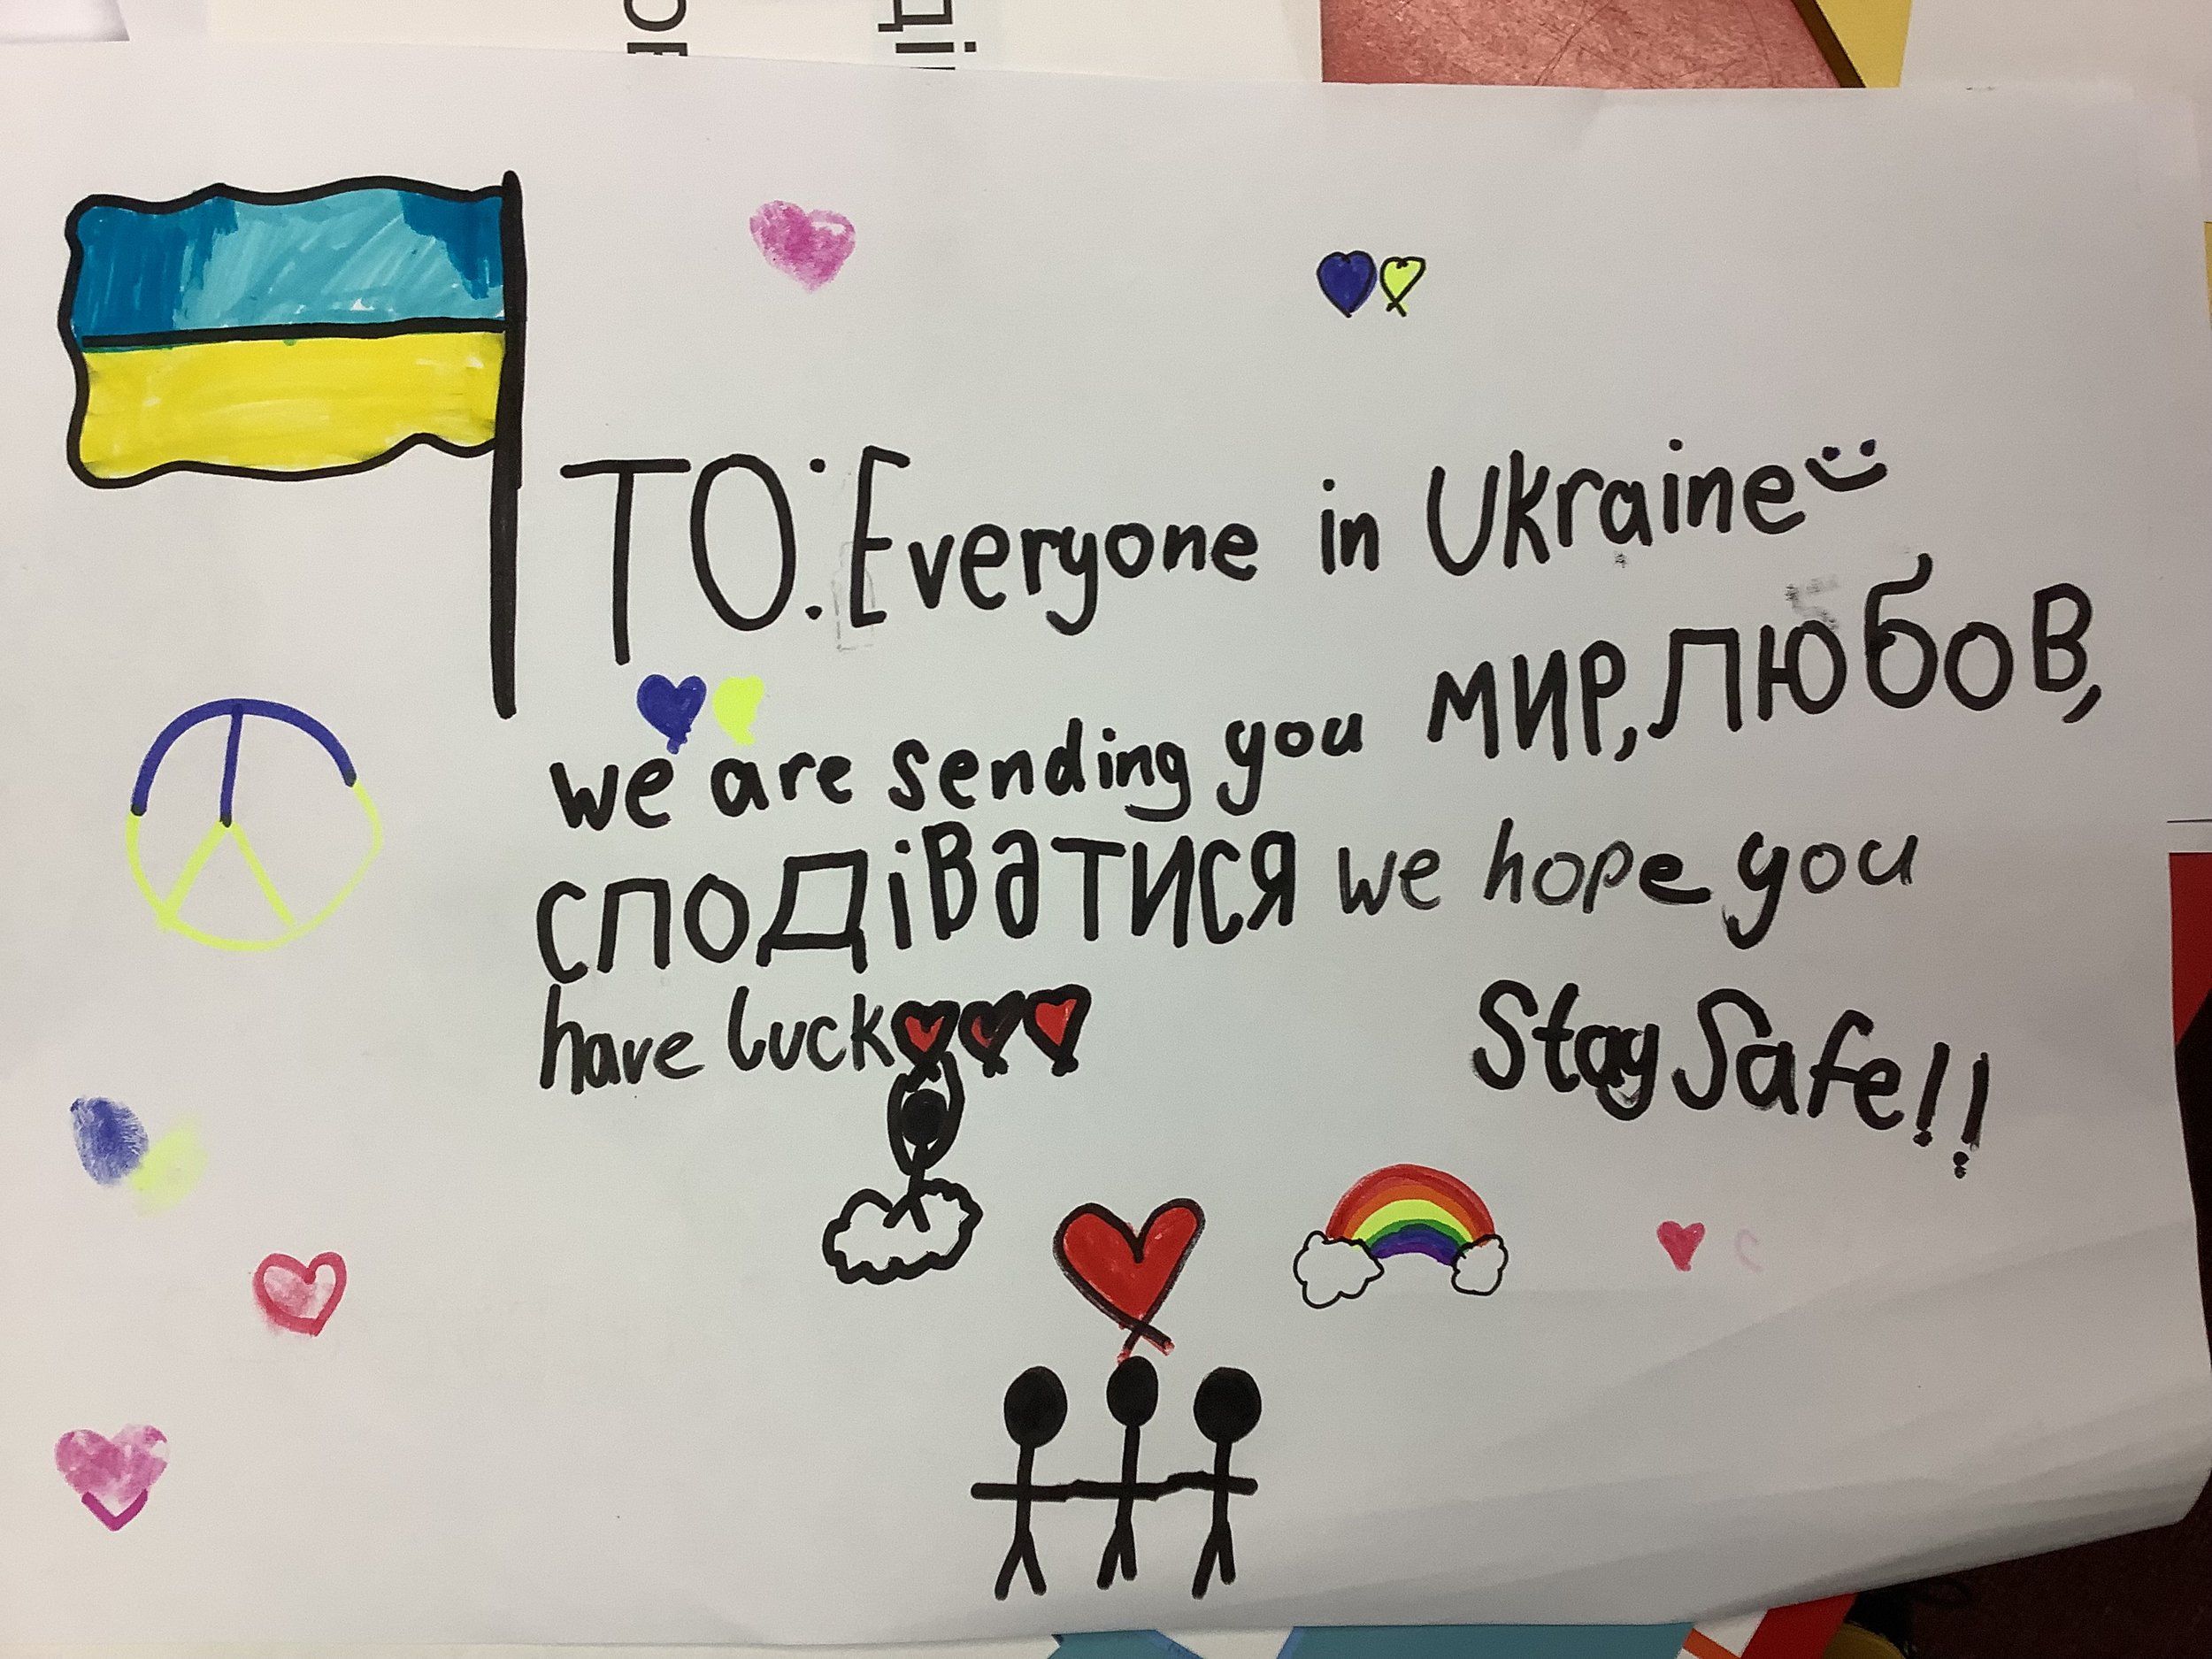 TO: Everyone in Ukraine
we are sending you мир, любов,
сподіватися we hope you
have luck
Stay Safe!!